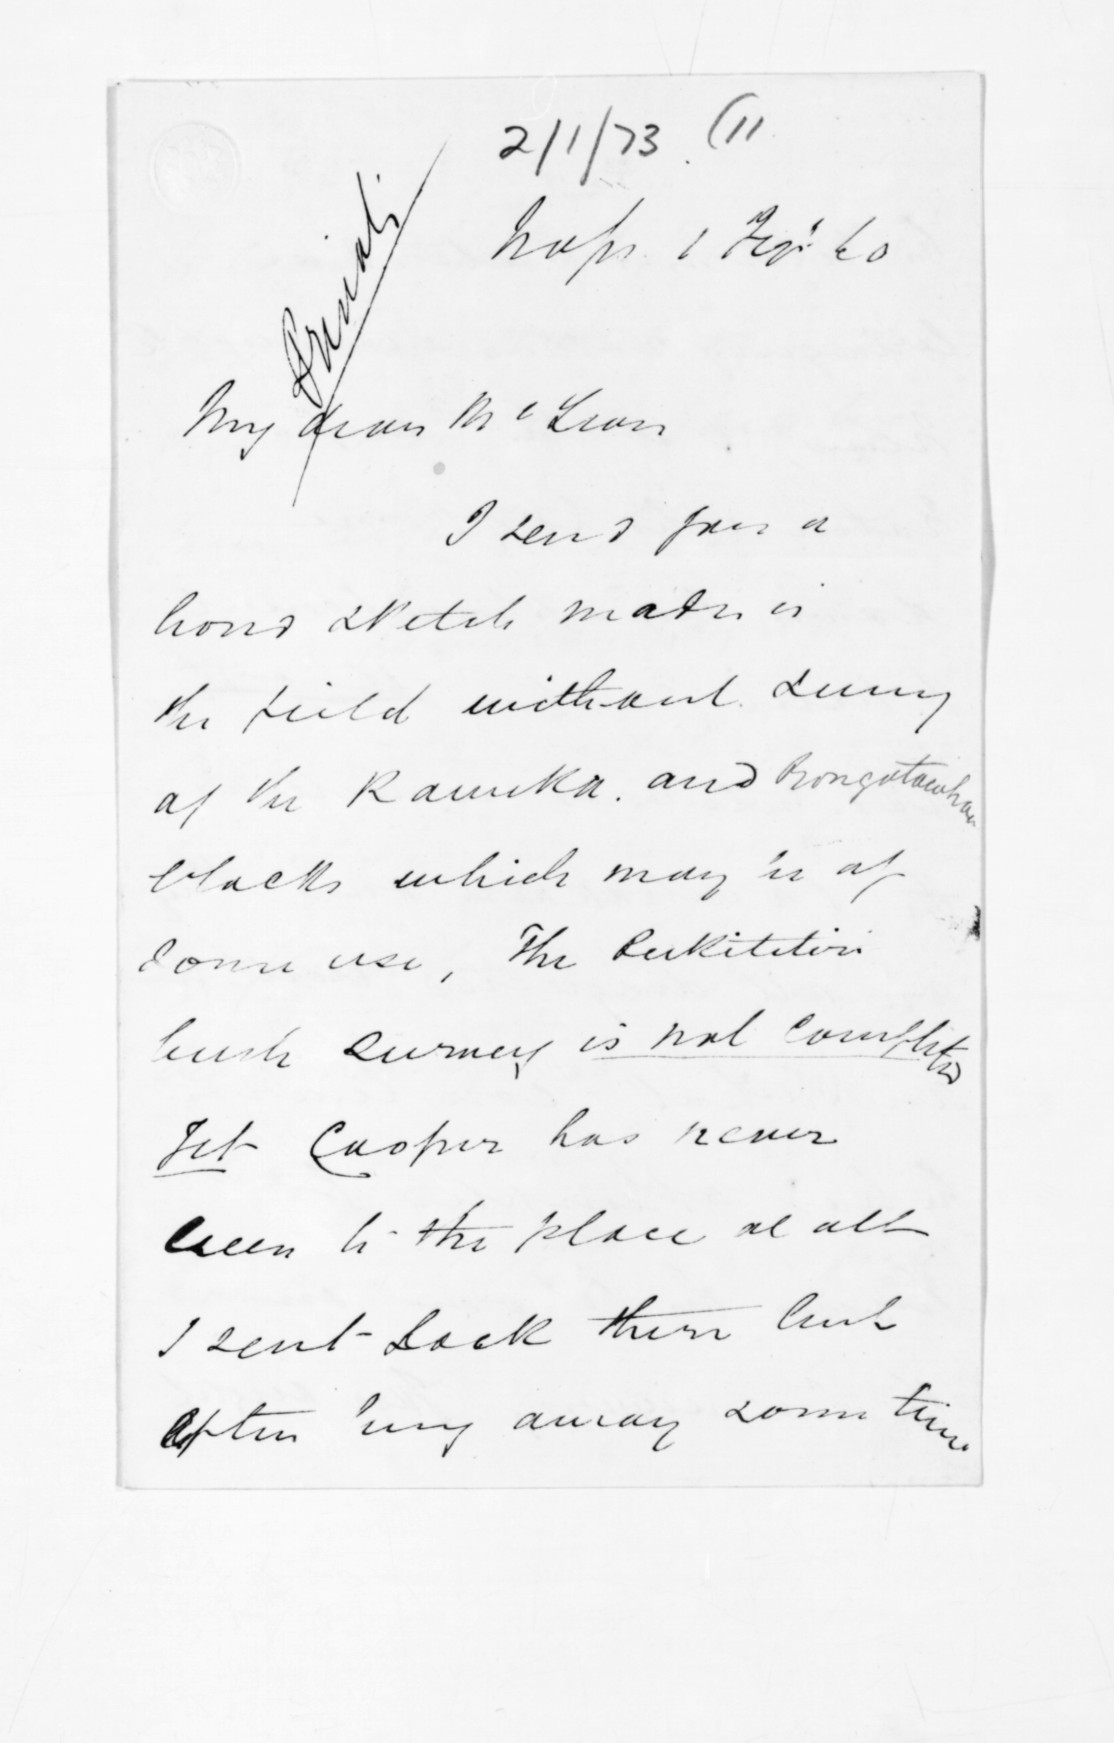 2/1/73 (11
Private
Napr. 1 60
My dear McLean
I send you a
hand sketch made in
the field without survey
of the Raumka. and
blocks which may be of
some use, The Puketitiri
bush survey is not completed
Yet Cooper has never
been to the place at all
I sent Lock there but
after being away some time